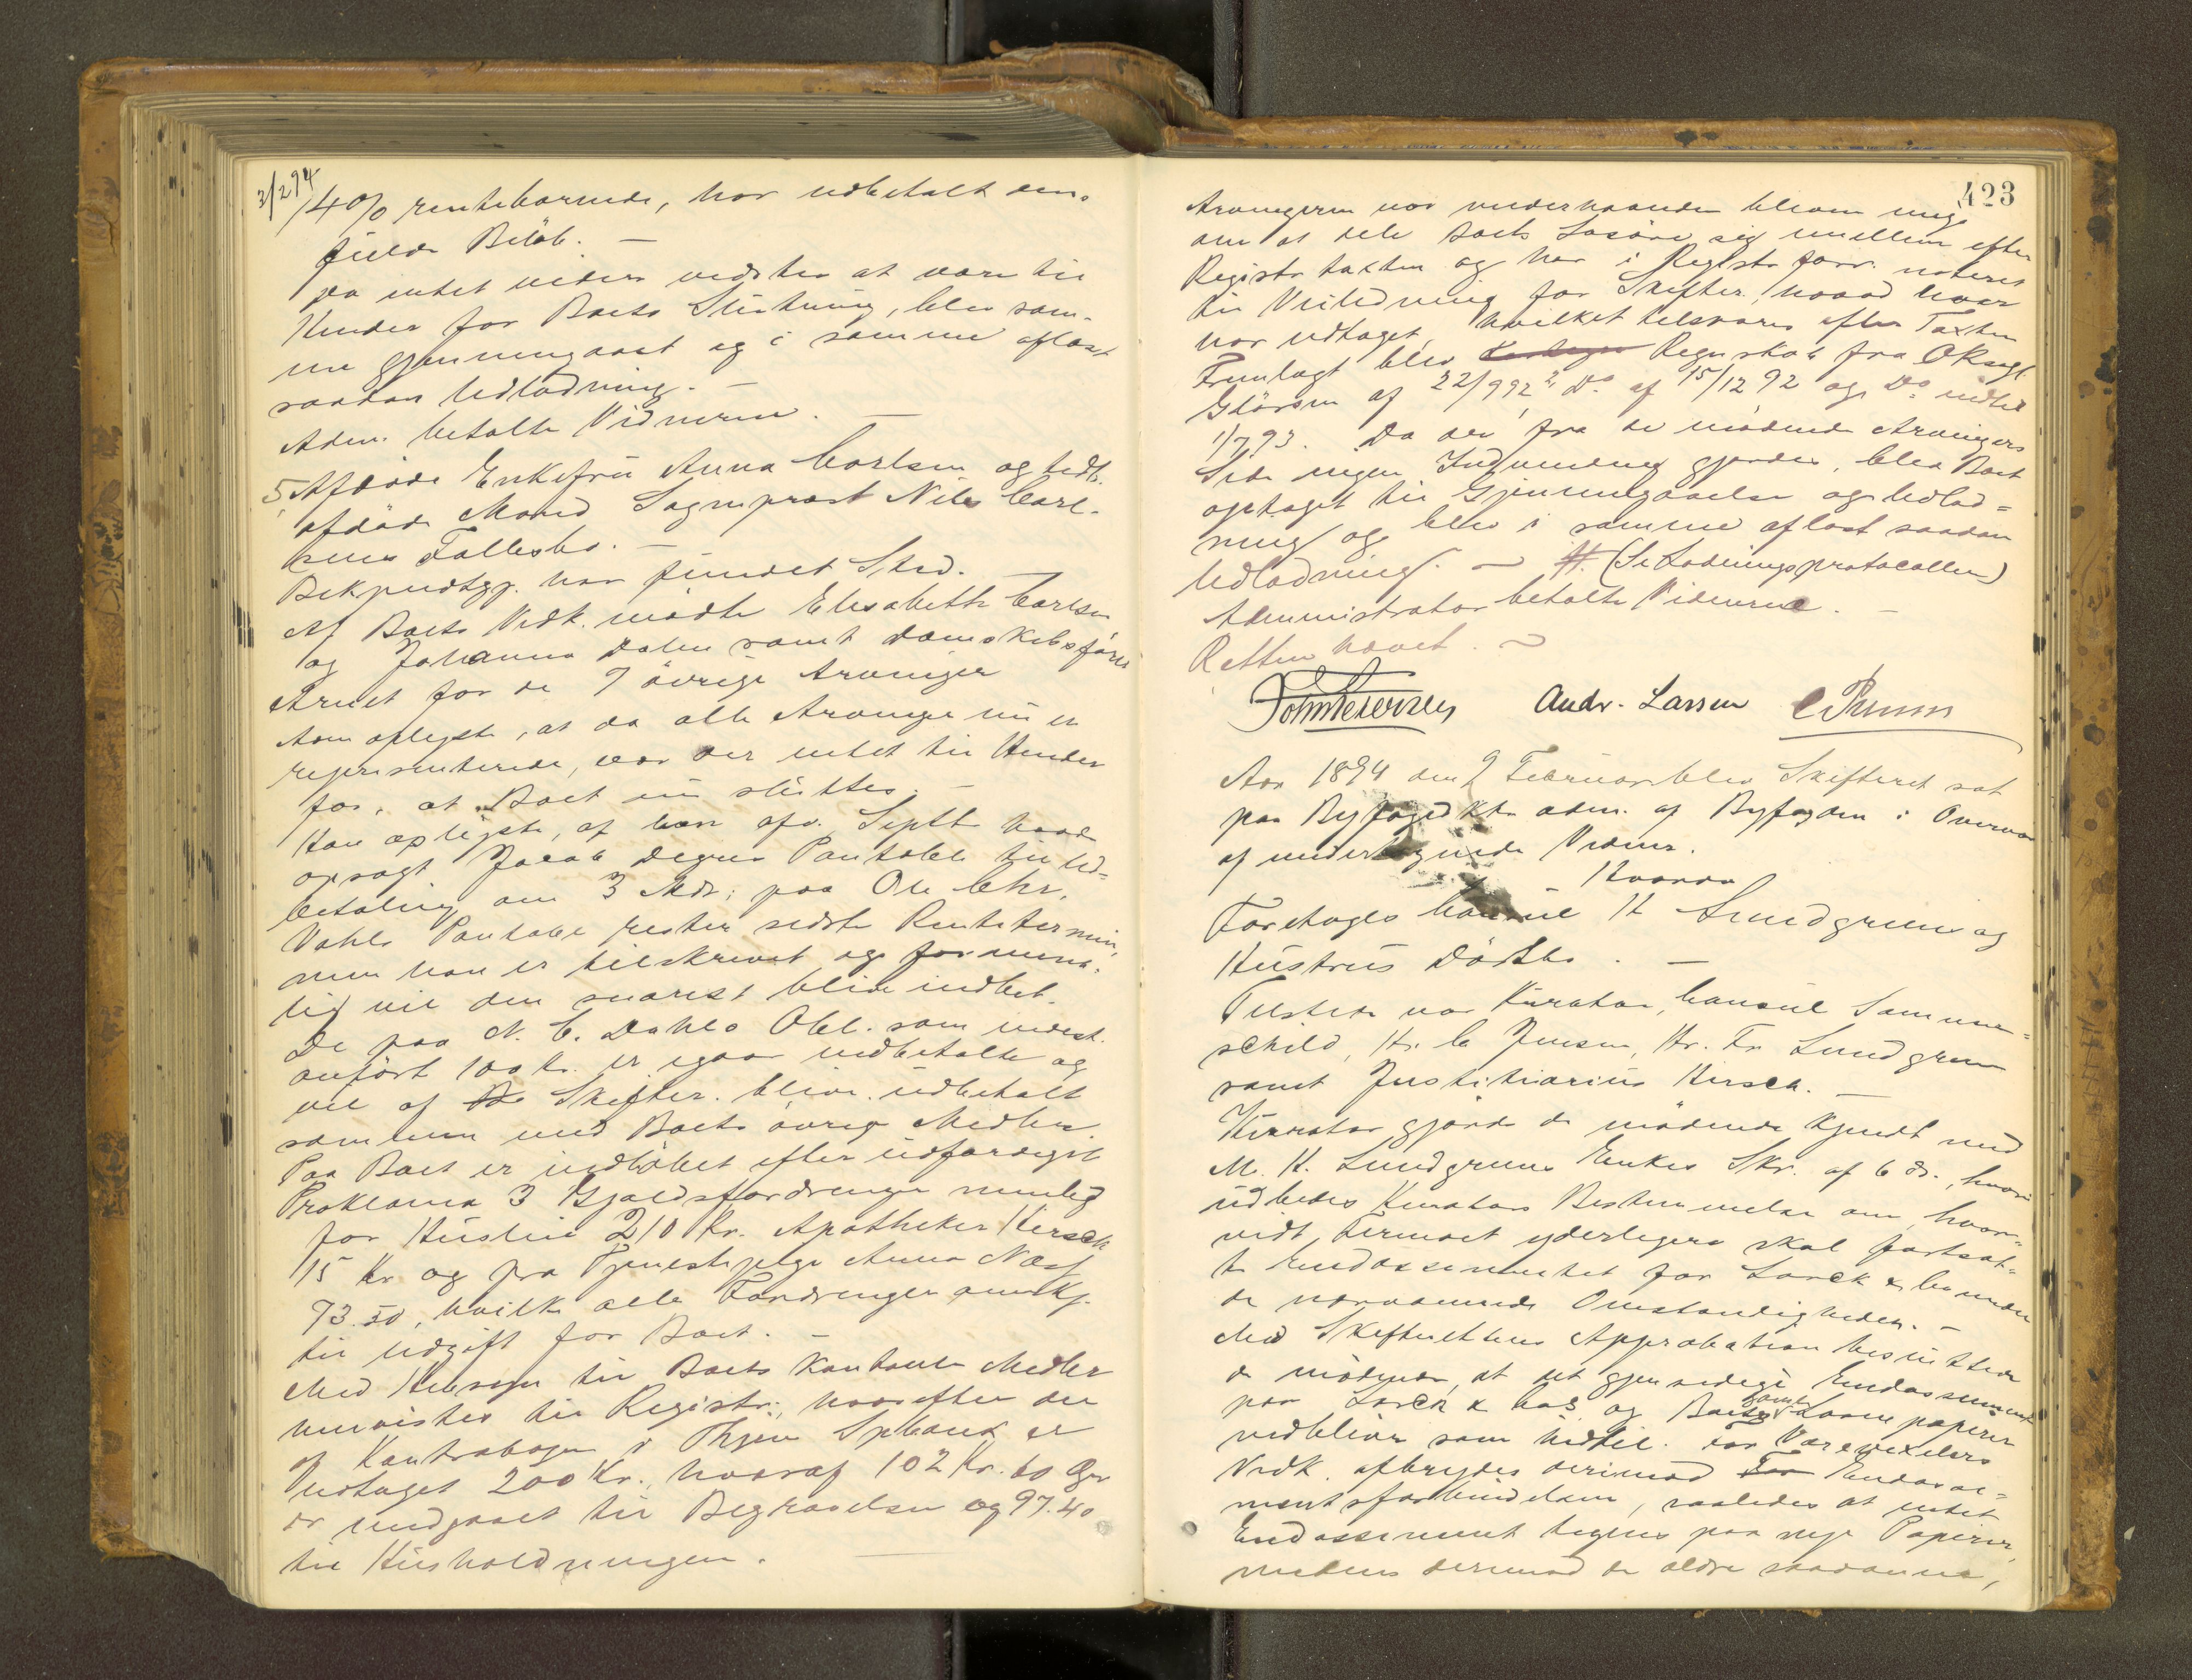 3/2 94
4% rentebærende, har udbetalt em.
fulde Beløb. —
Da intet videre vidstes at være til
Hinder for Boets Slutning, blev sam-
me gjennemgaaet og i samme aflæst
saadan Udlodning. —
Adm. betalte Vidnerne. —
5, Afdøde Enkefru Anna Carlsen og tidl.
afdøde Mand Sogneprest Nils Carl-
sens Fællesbo. —
Bekjendtgj. har fundet Sted. —
Af Boets Vedk. mødte Elisabeth Carlsen
og Johanna Dalen samt Dampskibsfører
Arnet for de 7 øvrige Arvinger
Adm oplyste, at da alle Arvinger nu er
representerede, var der intet til Hinder
for, at Boet nu sluttes. —
Han oplyste, at han afv. Septb havde
opsagt Jacob Degnes Pantobl. til Ud-
betaling om 3 Mdr; paa Ole Chr.
Vahls Pantobl rester sidste Rentetermin,
men han er tilskrevet og forment-
lig vil den snarest blive indbet.
De paa N. C. Dahls Obl. som indest.
anført 100 Kr. er igaar indbetalte og
vil af Skifter. blive udbetalt
sammen med Boets øvrige Midler.
Paa Boet er indløbet efter udfærdiget
Proklama 3 Gjældsfordringer nemlig
for Husleie 210 Kr. Apotheker Hersch
15 Kr og fra Tjenestepige Anna Næss
73.50, hvilke alle Fordringer anerkj.
til Udgift for Boet. —
Med Hensyn til Boets kontante Midler
henvistes til Registr:, hvorefter der
af Kontrabogen i Thjem Spbank er
udtaget 200 Kr., hvoraf 102 Kr. 60 Øre
er medgaaet til Begravelsen og 97.40
til Husholdningen. —
423
Arvingerne var underhaanden bleven enige
om at dele Boets Løsøre sig imellem efter
Registr taxten og har i Registr forr. noteret
til Veiledning for Skifter. hvad hver
har udtaget, hvilket tilsvares efter Taxten
Fremlagt blev Regnskab fra OKsagf.
Glørsen af 22/9 92, Do. af 15/12 92 og Do. indtil
1/7 93. Da der fra de mødende Arvingers
Side ingen Indvending gjordes, blev Boet
optaget til Gjennemgaaelse og Udlod=
ning og blev i samme aflæst saadan
Udlodning. — (Se Lodningsprotocollen)
Administrator betalte Vidnerne. —
Retten hævet. —
John Petersen Andr. Larsen
Aar 1894 den 9 Februar blev Skifteret sat
paa Byfogedkt. adm. af Byfogden i Overvær
af undertegnede Vidner.
— Hvorda
Foretoges Konsul H Lundgreens og
Hustrus Dødsbo. —
Tilstede var Kurator, Consul Sommer=
schild, Hr. C Jensen, Hr. Fr Lundgreen
samt Justitiarius Hirsch. —
Kurator gjorde de mødende kjendt med
M. H. Lundgreens Enkes Skr. af 6 ds., hvori
udbedes Kurators Bestemmelse om, hvor=
vidt hermed yderligere skal fortsæt=
te Endossementet for Lorck & Co under
de nærværende Omstændigheder. —
Med Skifterettens Approbation besluttede
de mødende, at det gjensidige Endossement
paa Lorck & Cos og Boets samt Laanepapirer
vedbliver som hidtil. For Varevexelers
Vedk. afbrydes derimod Endosse=
mentsforbindelsen, saaledes at intet
Endossement tegnes paa nye Papirer,
medens derimod de ældre saadanne,